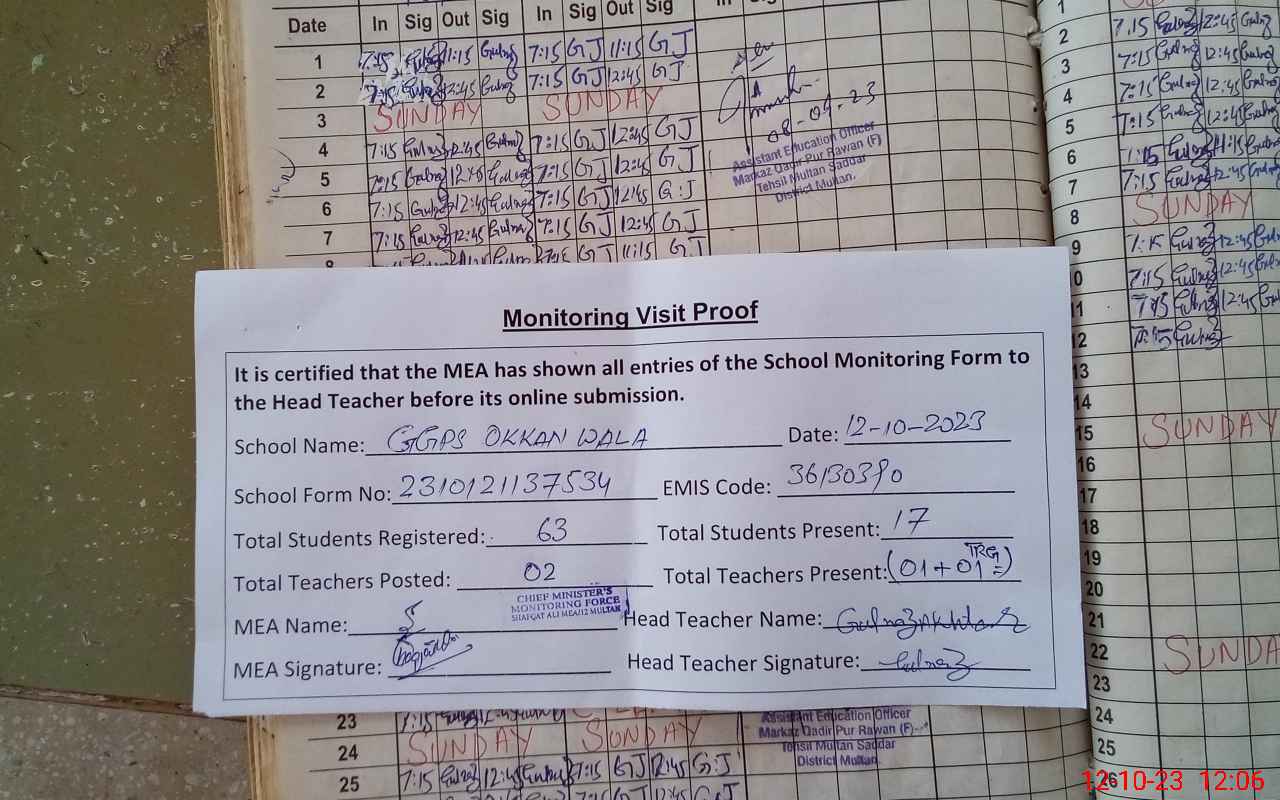 Date In Sig Out Sig In Sig Out Sig In
1 7:15 11:15 Gulnaz 7:15 GJ 11:15 GJ
2 7:15 12:45 Gulnaz 7:15 GJ 12:45 GJ
3 SUNDAY SUNDAY
4 7:15 Gulnaz 12:45 Gulnaz 7:15 GJ 12:45 GJ
5 7:15 Gulnaz 12:45 Gulnaz 7:15 GJ 12:45 GJ
6 7:15 Gulnaz 12:45 Gulnaz 7:15 GJ 12:45 G:J
7 7:15 Gulnaz 12:45 Gulnaz 7:15 GJ 12:45 GJ
8 GJ 11:15 GJ
08-09-23
Assistant Education Officer
Markaz Qadir Pur Rawan (F)
Tehsil Multan Saddar
District Multan.
1
2 7:15 Gulnaz 12:45 Gulnaz
3 7:15 Gulnaz 12:45 Gulnaz
4 7:15 Gulnaz 12:45 Gulnaz
5 7:15 Gulnaz 12:45 Gulnaz
6 7:15 Gulnaz 11:15 Gulnaz
7 7:15 Gulnaz 12:45 Gulnaz
8 SUNDAY
9 7:15 Gulnaz 12:45 Gulnaz
0 7:15 Gulnaz 12:45 Gulnaz
11 7:15 Gulnaz 12:45
12 7:15 Gulnaz
13
14
15 SUNDAY
16
17
18
19
20
21
22 SUNDA
23
24
25
26
Monitoring Visit Proof
It is certified that the MEA has shown all entries of the School Monitoring Form to
the Head Teacher before its online submission.
School Name: GGPS OKKAN WALA Date: 12-10-2023
School Form No: 2310121137534 EMIS Code: 36130390
Total Students Registered: 63 Total Students Present: 17
Total Teachers Posted: 02 Total Teachers Present: (01+01 TRG)
CHIEF MINISTER'S
MONITORING FORCE
SHAFQAT ALI MEA/12 MULTAN
MEA Name: Head Teacher Name: Gulnaz Akhtar
MEA Signature: Head Teacher Signature: Gulnaz
23 7:15 Gulnaz 12:45 Gulnaz
24 SUNDAY SUNDAY
25 7:15 Gulnaz 12:45 Gulnaz 7:15 GJ 12:45 G:J
Assistant Education Officer
Markaz Qadir Pur Rawan (F)
Tehsil Multan Saddar
District Multan.
12-10-23 12:06